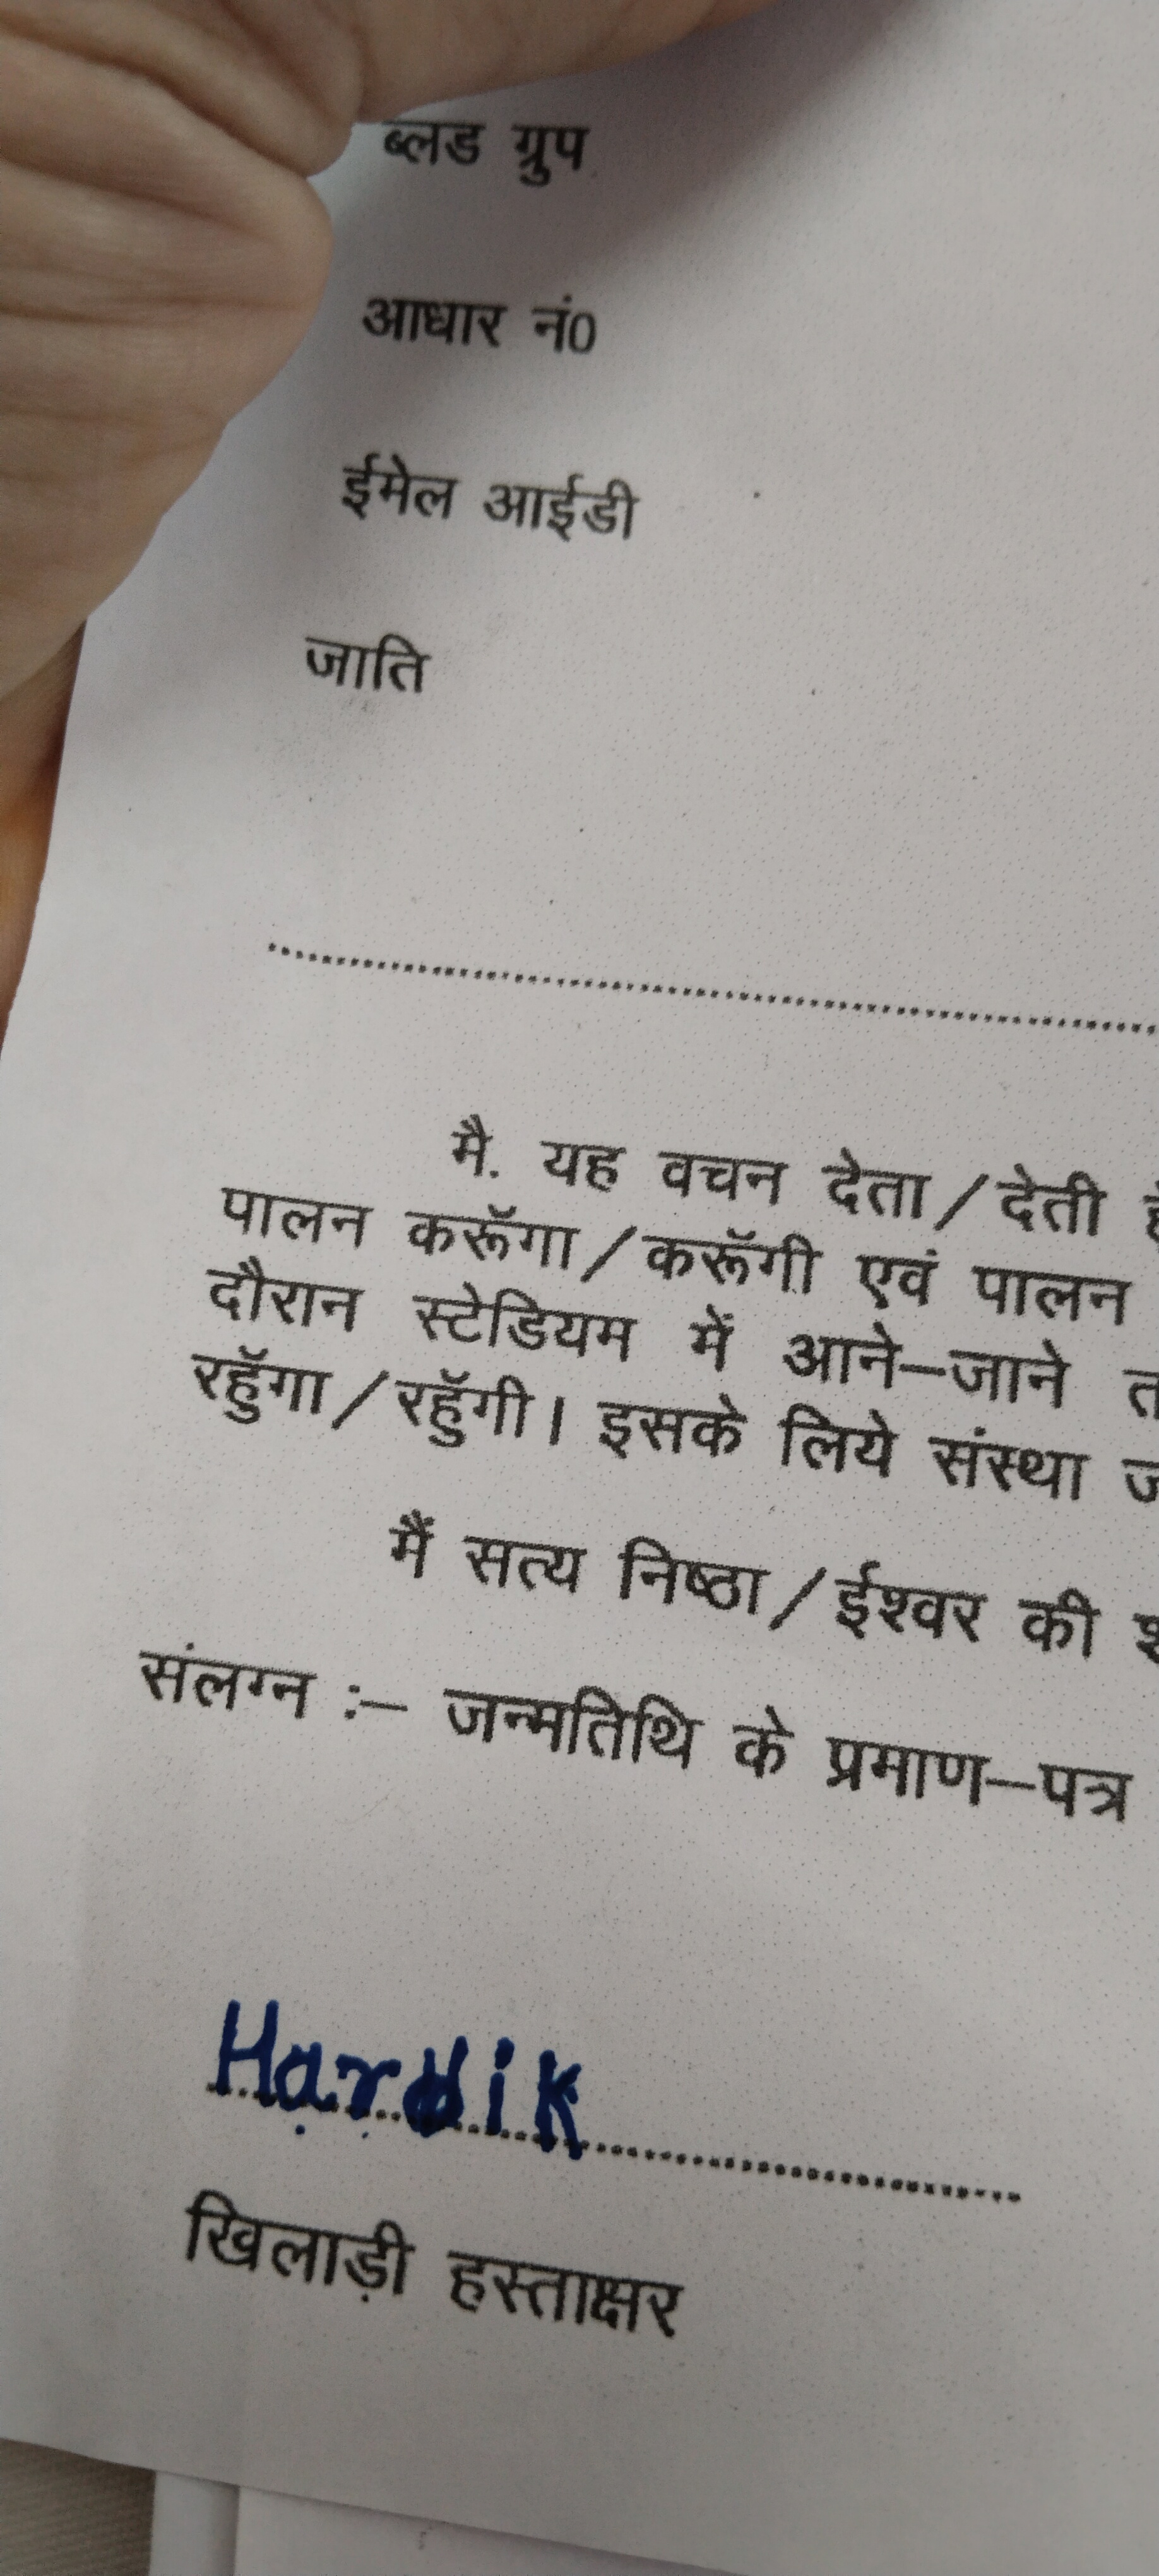 ब्लड ग्रुप
आधार नं0
ईमेल आईडी
जाति
मै. यह वचन देता/देती
पालन करूॅगा/करूॅगी एवं पालन
दौरान स्टेडियम में आने–जाने
रहुॅगा/रहुॅगी। इसके लिये संस्था
मैं सत्य निष्ठा/ईश्वर की
संलग्न :– जन्मतिथि के प्रमाण–पत्र
Hardik
खिलाड़ी हस्ताक्षर